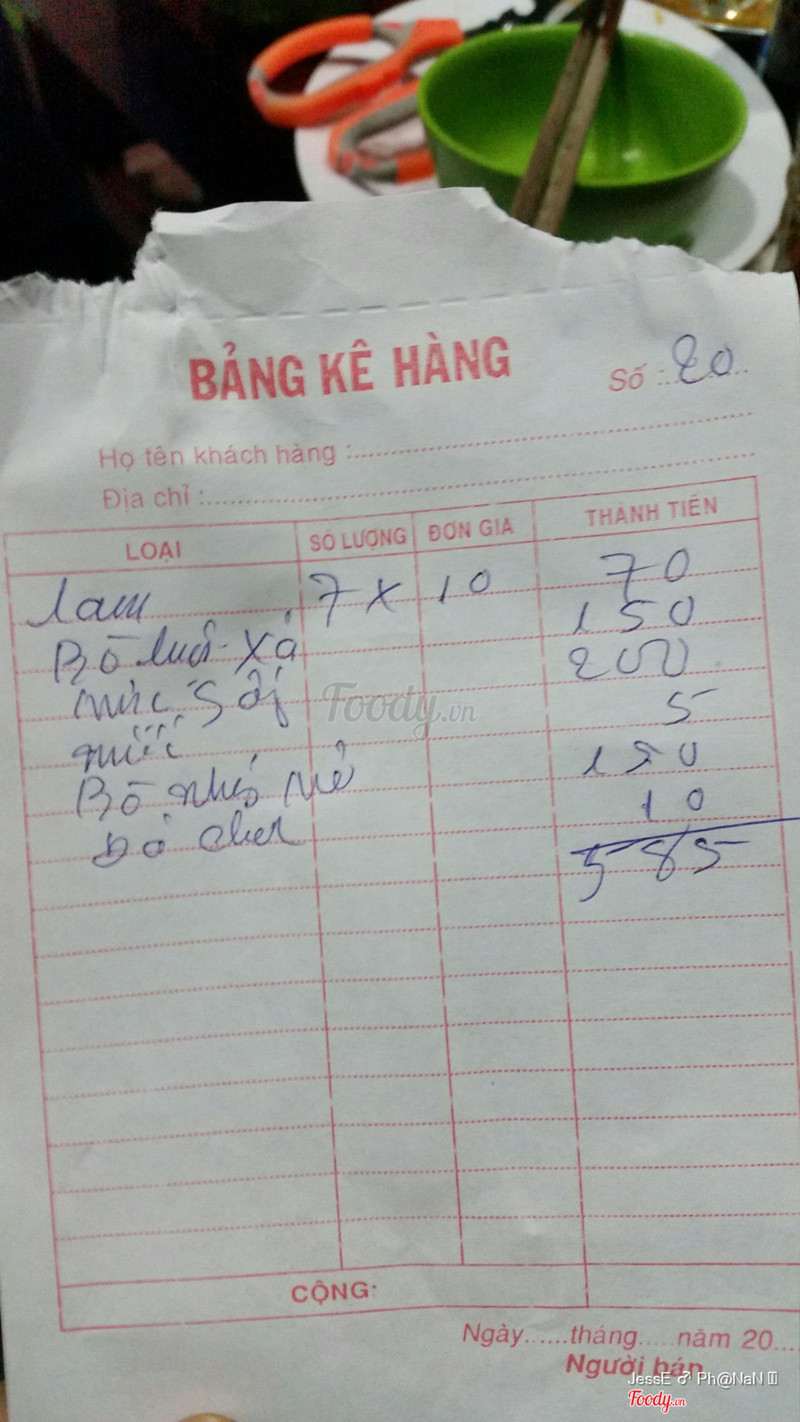 BẢNG KÊ HÀNG
Số : 20
Họ tên khách hàng :
Địa chỉ :
LOẠI SỐ LƯỢNG ĐƠN GIA THÀNH TIỀN
lam 7 x 10 70
Bò lưới xả 150
mực 200
Foody.vn
nước 5
Bò nhúng mẻ 150
Đồ chua 10
585
CỘNG:
Ngày......tháng.....năm 20....
Người bán
JessE ♂ Ph@NaN
Foody.vn